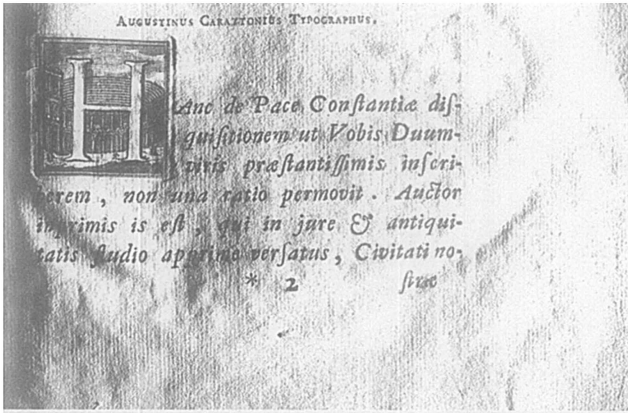 AUGUSTINUS CARATTONIUS TYPOGRAPHUS.
HAnc de Pace Conſtantiæ diſ-
quiſitionem ut Vobis Duum-
viris præſtantiſſimis inſcri-
berem, non una ratio permovit. Auctor
imprimis is eſt, qui in jure & antiqui-
tatis ſtudio apprime verſatus, Civitati no-
* 2 ſtræ